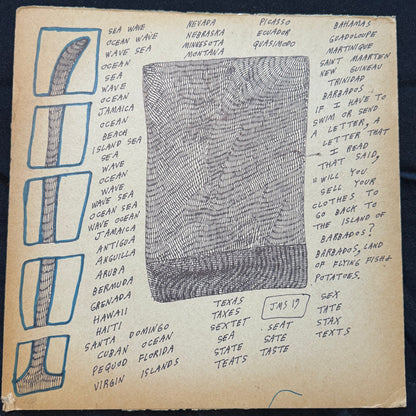 SEA WAVE
OCEAN WAVE
WAVE SEA
OCEAN
SEA
WAVE
OCEAN
JAMAICA
OCEAN
BEACH
ISLAND SEA
SEA
WAVE
OCEAN
WAVE
WAVE SEA
OCEAN SEA
WAVE OCEAN
JAMAICA
ANTIGUA
ANGUILLA
ARUBA
BERMUDA
GRENADA
HAWAII
HAITI
SANTA DOMINGO
CUBAN OCEAN
PEQUOD FLORIDA
VIRGIN ISLANDS
NEVADA
NEBRASKA
MINNESOTA
MONTANA
PICASSO
ECUADOR
QUASIMODO
BAHAMAS
GUADOLOUPE
MARTINQUE
SAINT MAARTEN
NEW GUINEAU
TRINIDAD
BARBADOS
IF I HAVE TO
SWIM OR SEND
A LETTER, A
LETTER THAT
I READ
THAT SAID,
"WILL YOU
SELL YOUR
CLOTHES TO
GO BACK TO
THE ISLAND OF
BARBADOS?
BARBADOS, LAND
OF FLYING FISH &
POTATOES.
TEXAS
TAXES
SEXTET
SEA
STATE
TEATS
JMS 19
SEAT
SATE
TASTE
SEX
TATE
STAX
TEXTS